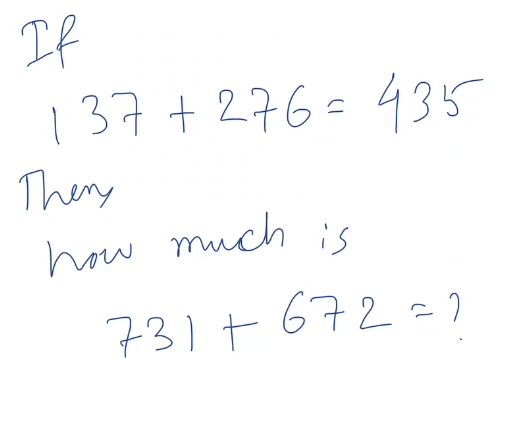 If
137 + 276 = 435
Then,
how much is
731 + 672 = ?